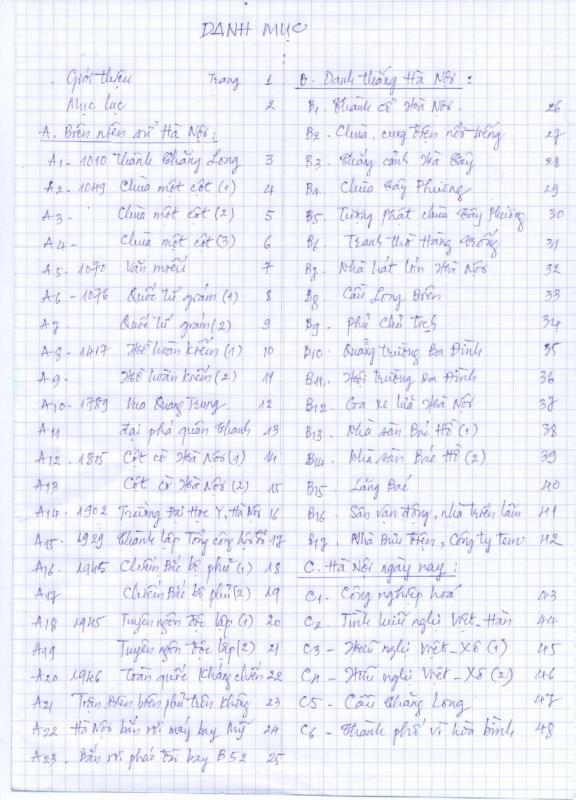 DANH MỤC
Giới thiệu Trang 1
Mục lục 2
A. Biên niên sử Hà Nội:
A1 - 1010 Thành Thăng Long 3
A2 - 1049 Chùa một cột (1) 4
A3 - Chùa một cột (2) 5
A4 - Chùa một cột (3) 6
A5 - 1070 Văn miếu 7
A6 - 1076 Quốc tử giám (1) 8
A7 Quốc tử giám (2) 9
A8 - 1417 Hồ hoàn kiếm (1) 10
A9 - Hồ hoàn kiếm (2) 11
A10 - 1789 Vua Quang Trung 12
A11 Đại phá quân Thanh 13
A12 - 1805 Cột cờ Hà Nội (1) 14
A13 Cột cờ Hà Nội (2) 15
A14 - 1902 Trường Đại Học Y, Hà Nội 16
A15 - 1929 Thành lập Tổng công hội 17
A16 - 1945 Chiếm Bắc bộ phủ (1) 18
A17 Chiếm Bắc bộ phủ (2) 19
A18 1945 Tuyên ngôn độc lập (1) 20
A19 Tuyên ngôn độc lập (2) 21
A20 1946 Toàn quốc kháng chiến 22
A21 Trận Điện biên phủ trên không 23
A22 Hà Nội bắn rơi máy bay Mỹ 24
A23 - Bắn rơi pháo đài bay B52 25
B. Danh thắng Hà Nội:
B1 - Thành cổ Hà Nội. 26
B2 - Chùa, cung điện nổi tiếng 27
B3 - Thắng cảnh Hà Tây 28
B4 - Chùa Tây Phương 29
B5 - Tượng phật chùa Tây Phương 30
B6 - Tranh thờ Hàng Trống 31
B7 - Nhà hát lớn Hà Nội 32
B8 - Cầu Long Biên 33
B9 - Phủ Chủ tịch 34
B10 - Quảng trường Ba Đình 35
B11 - Hội trường Ba Đình 36
B12 - Ga xe lửa Hà Nội 37
B13 - Nhà sàn Bác Hồ (1) 38
B14 - Nhà sàn Bác Hồ (2) 39
B15 - Lăng Bác 40
B16 - Sân vận động, nhà triển lãm 41
B17 - Nhà Bưu Điện, Công ty tem 42
C. Hà Nội ngày nay:
C1 - Công nghiệp hoá 43
C2 - Tình hữu nghị Việt-Hàn 44
C3 - Hữu nghị Việt-Xô (1) 45
C4 - Hữu nghị Việt-Xô (2) 46
C5 - Cầu Thăng Long 47
C6 - Thành phố vì hòa bình 48